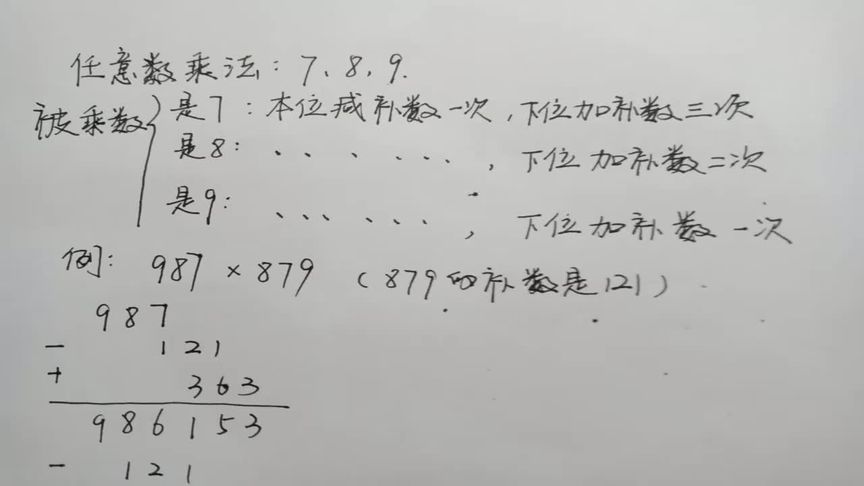 任意数乘法：7、8、9.
被乘数 是7：本位减补数一次，下位加补数三次
是8：、、、……，下位加补数二次
是9：、、、……，下位加补数一次
例：987×879（879的补数是121）
987
- 121
+ 363
986153
- 121